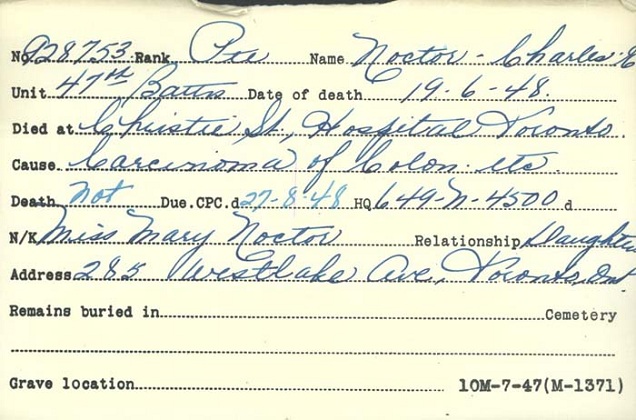 No 928753 Rank Pte Name Noctor - Charles E
Unit 47th Battn Date of death 19-6-48.
Died at Christie St., Hospital Toronto.
Cause Carcinoma of Colon etc
Death Not Due.CPC.d 27-8-48 HQ 649-N-4500 d
N/K Miss Mary Noctor Relationship Daughter
Address 285 Westlake Ave, Toronto, Ont
Remains buried in Cemetery
Grave location 10M-7-47(M-1371)